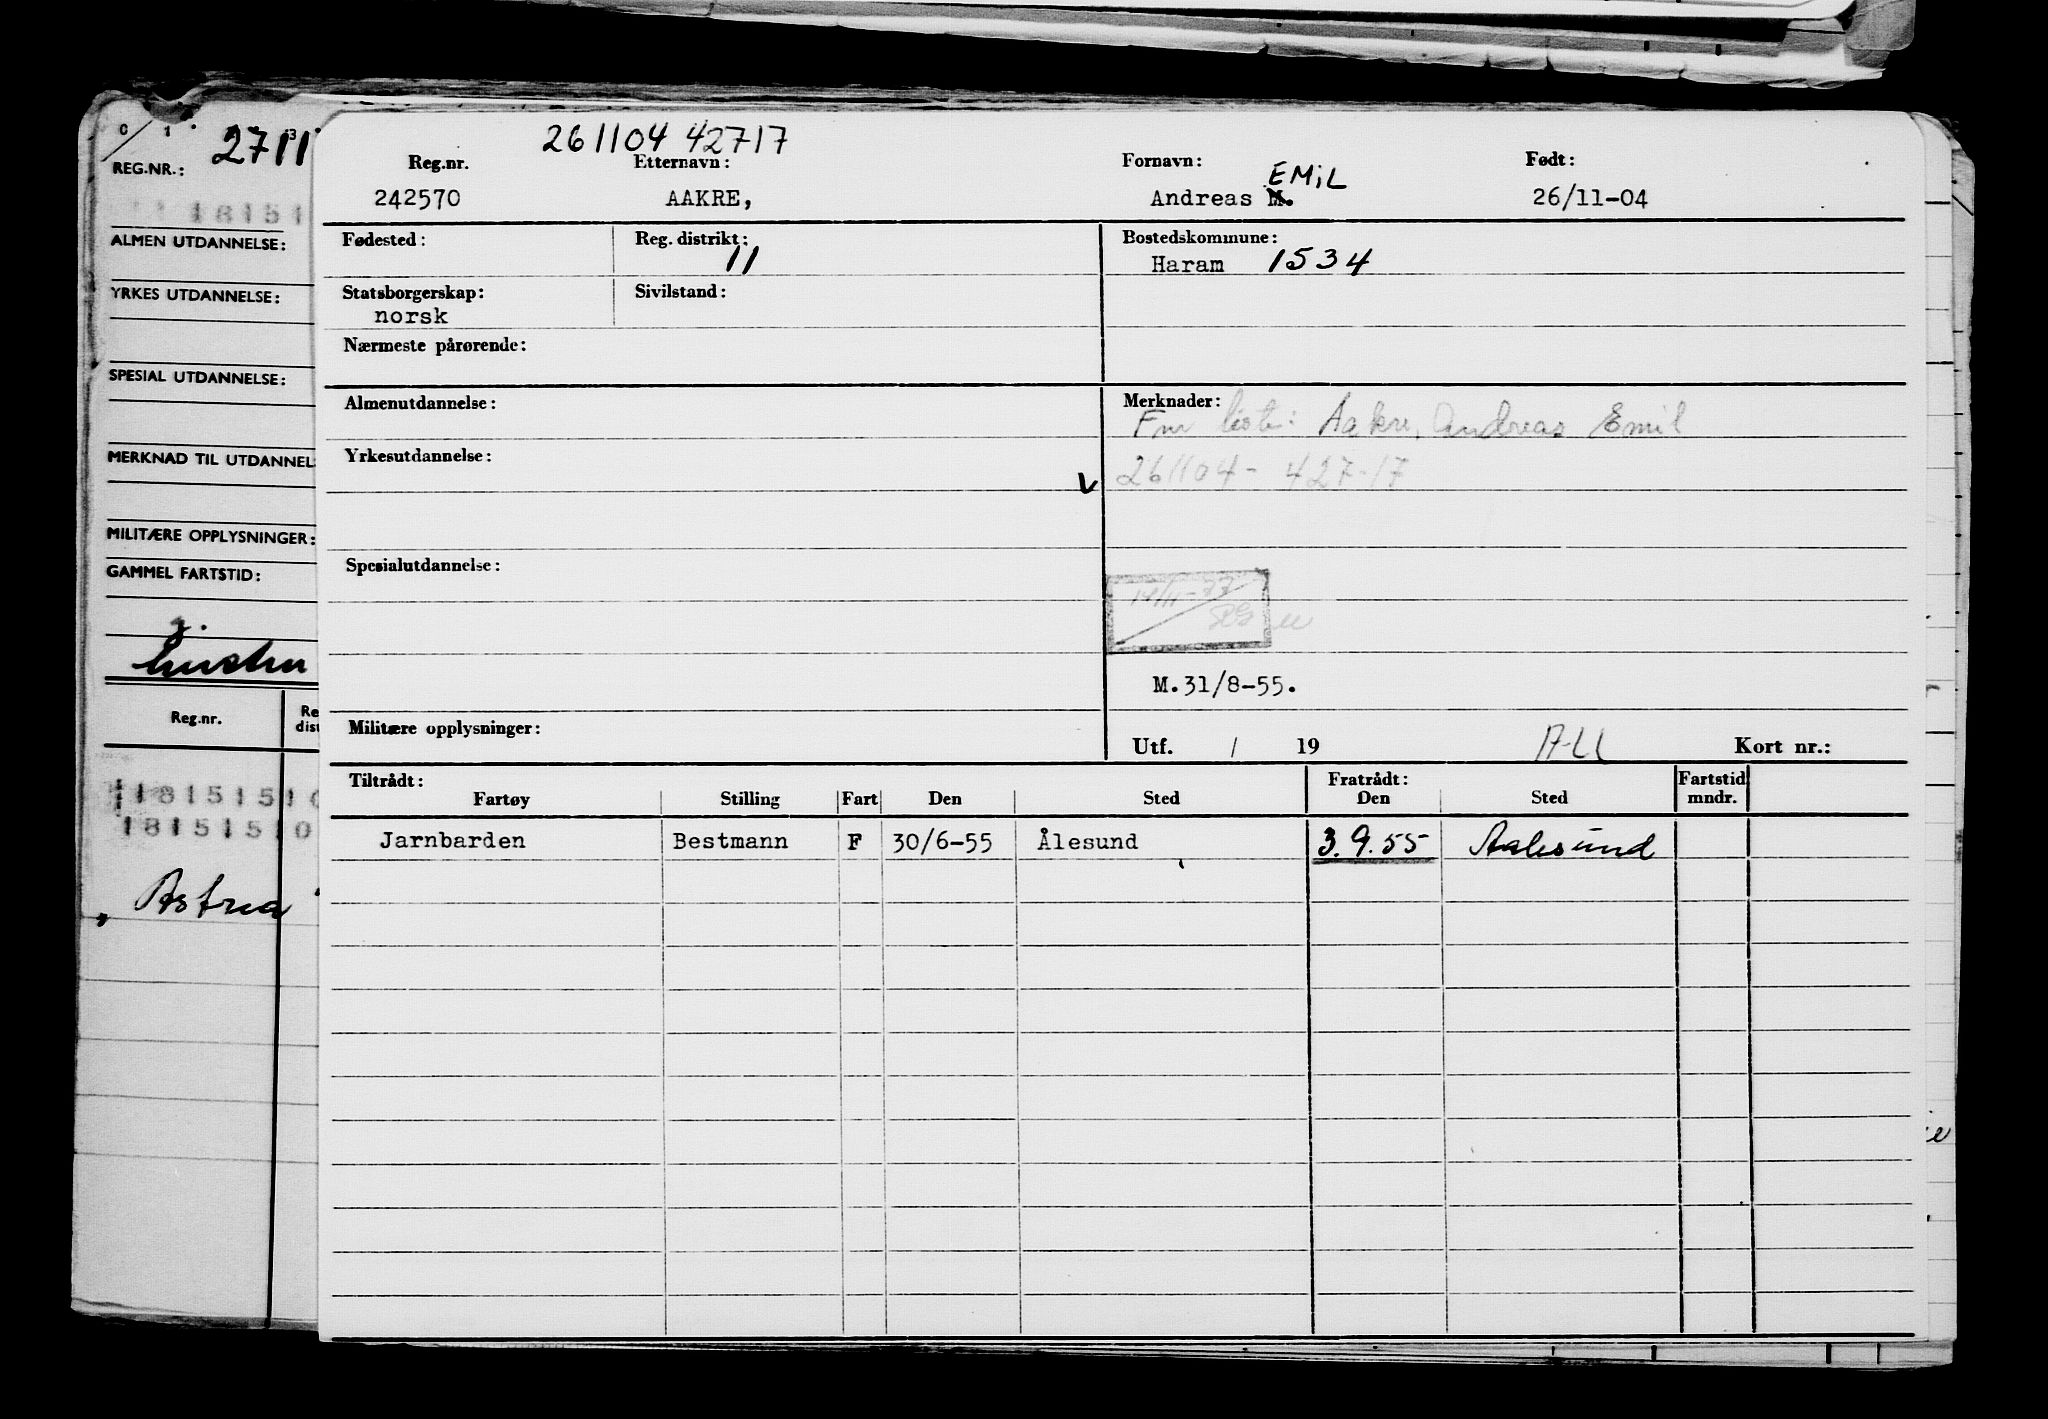 0 1 3
REG.NR.: 2711
18151
ALMEN UTDANNELSE:
YRKES UTDANNELSE:
SPESIAL UTDANNELSE:
MERKNAD TIL UTDANNEL
MILITÆRE OPPLYSNINGER:
GAMMEL FARTSTID:
Reg.nr. Re dist
1815150
1815150
„ Astrea "
261104 42717
Reg.nr. Etternavn: Fornavn: Født:
EMiL
242570 AAKRE, Andreas M. 26/11-04
Fødested: Reg. distrikt: Bostedskommune:
11 Haram 1534
Statsborgerskap: Sivilstand:
norsk
Nærmeste pårørende:
Almenutdannelse: Merknader:
Fnr liste: Aakre, Andreas Emil
Yrkesutdannelse:
V 261104 - 427-17
Spesialutdannelse:
14/11-77
M.31/8-55.
Militære opplysninger:
Utf. / 19 A-LL Kort nr.:
Tiltrådt: Fratrådt: Fartstid
Fartøy Stilling Fart Den Sted Den Sted mndr.
Jarnbarden Bestmann F 30/6-55 Ålesund 3.9.55 Aalesund